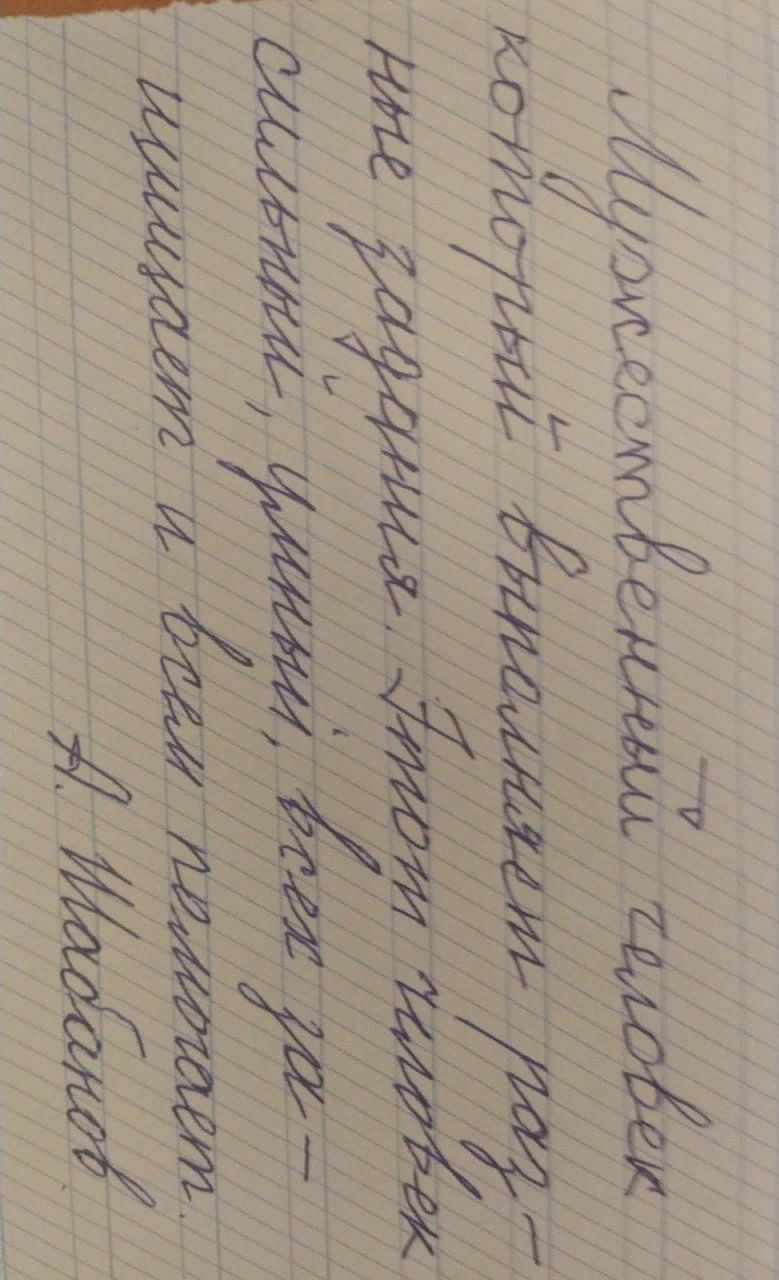 Мужественный человек
который выполняет раз-
ные задания. Этот человек
сильный, умный, всех за-
щищает и всем помогает.
А. Шабанов